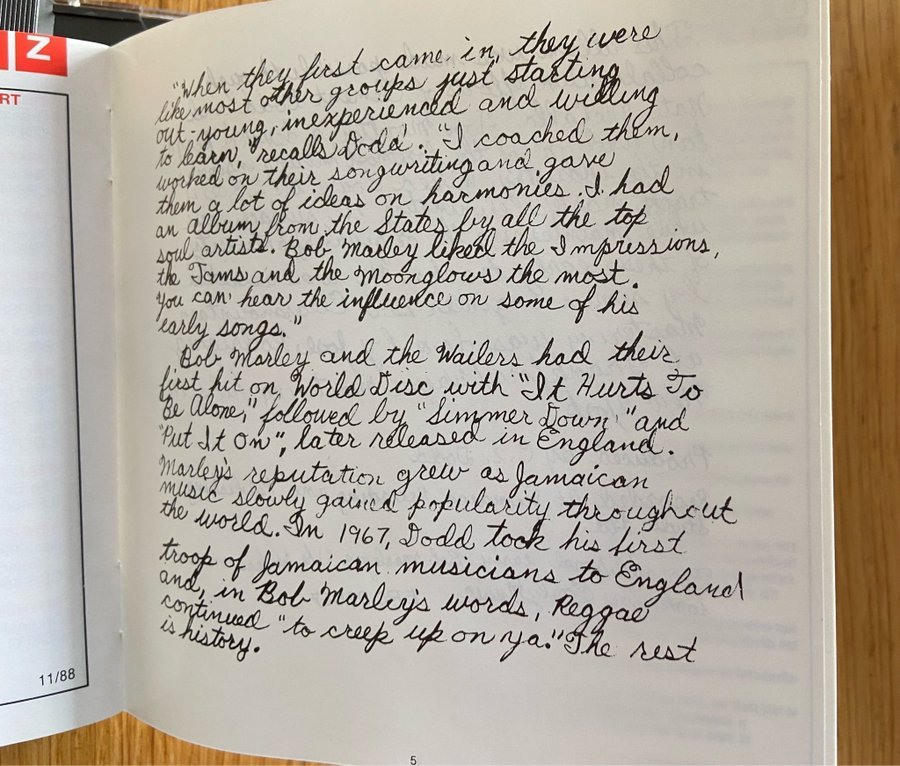 Z
RT
11/88
"When they first came in, they were
like most other groups just starting
out-young, inexperienced and willing
to learn," recalls Dodd. "I coached them,
worked on their songwriting and gave
them a lot of ideas on harmonies. I had
an album from the States by all the top
soul artists. Bob Marley liked the Impressions,
the Tams and the Moonglows the most.
You can hear the influence on some of his
early songs."
Bob Marley and the Wailers had their
first hit on World Disc with "It Hurts To
Be Alone," followed by "Simmer Down," and
"Put It On", later released in England.
Marley's reputation grew as Jamaican
music slowly gained popularity throughout
the world. In 1967, Dodd took his first
troop of Jamaican musicians to England
and, in Bob Marley's words, Reggae
continued "to creep up on ya." The rest
is history.
5